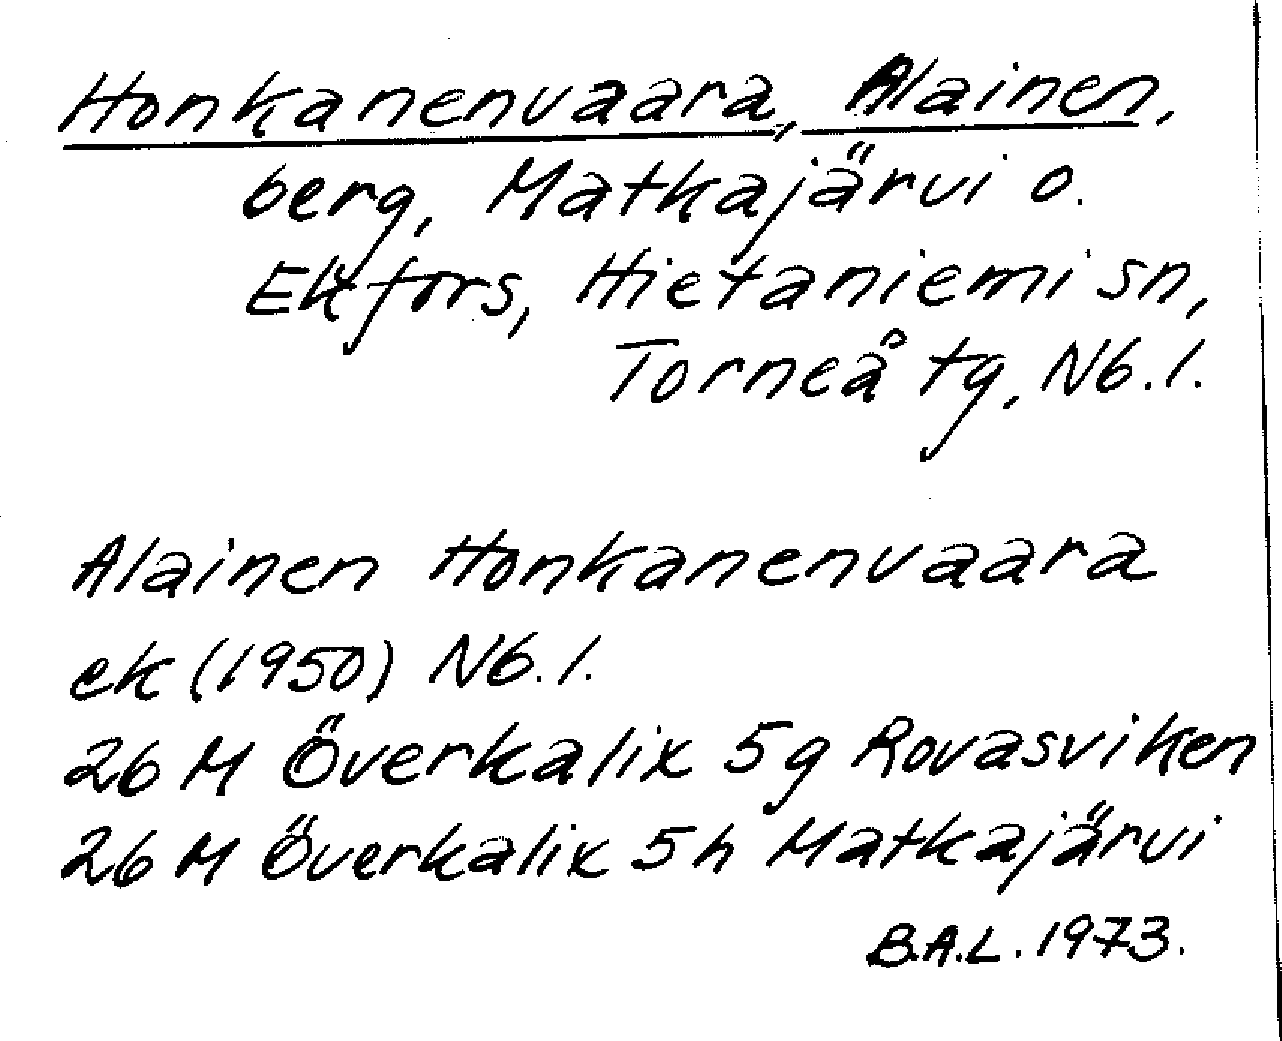 Honkanenvaara, Alainen,
berg, Matkajärvi o.
Ekfors, Hietaniemi sn,
Torneå tg, Nb. l.
Alainen Honkanenvaara
ek (1950) Nb. l.
26 M Överkalix 5g Rovasviken
26 M Överkalix 5h Matkajärvi
B.A.L. 1973.